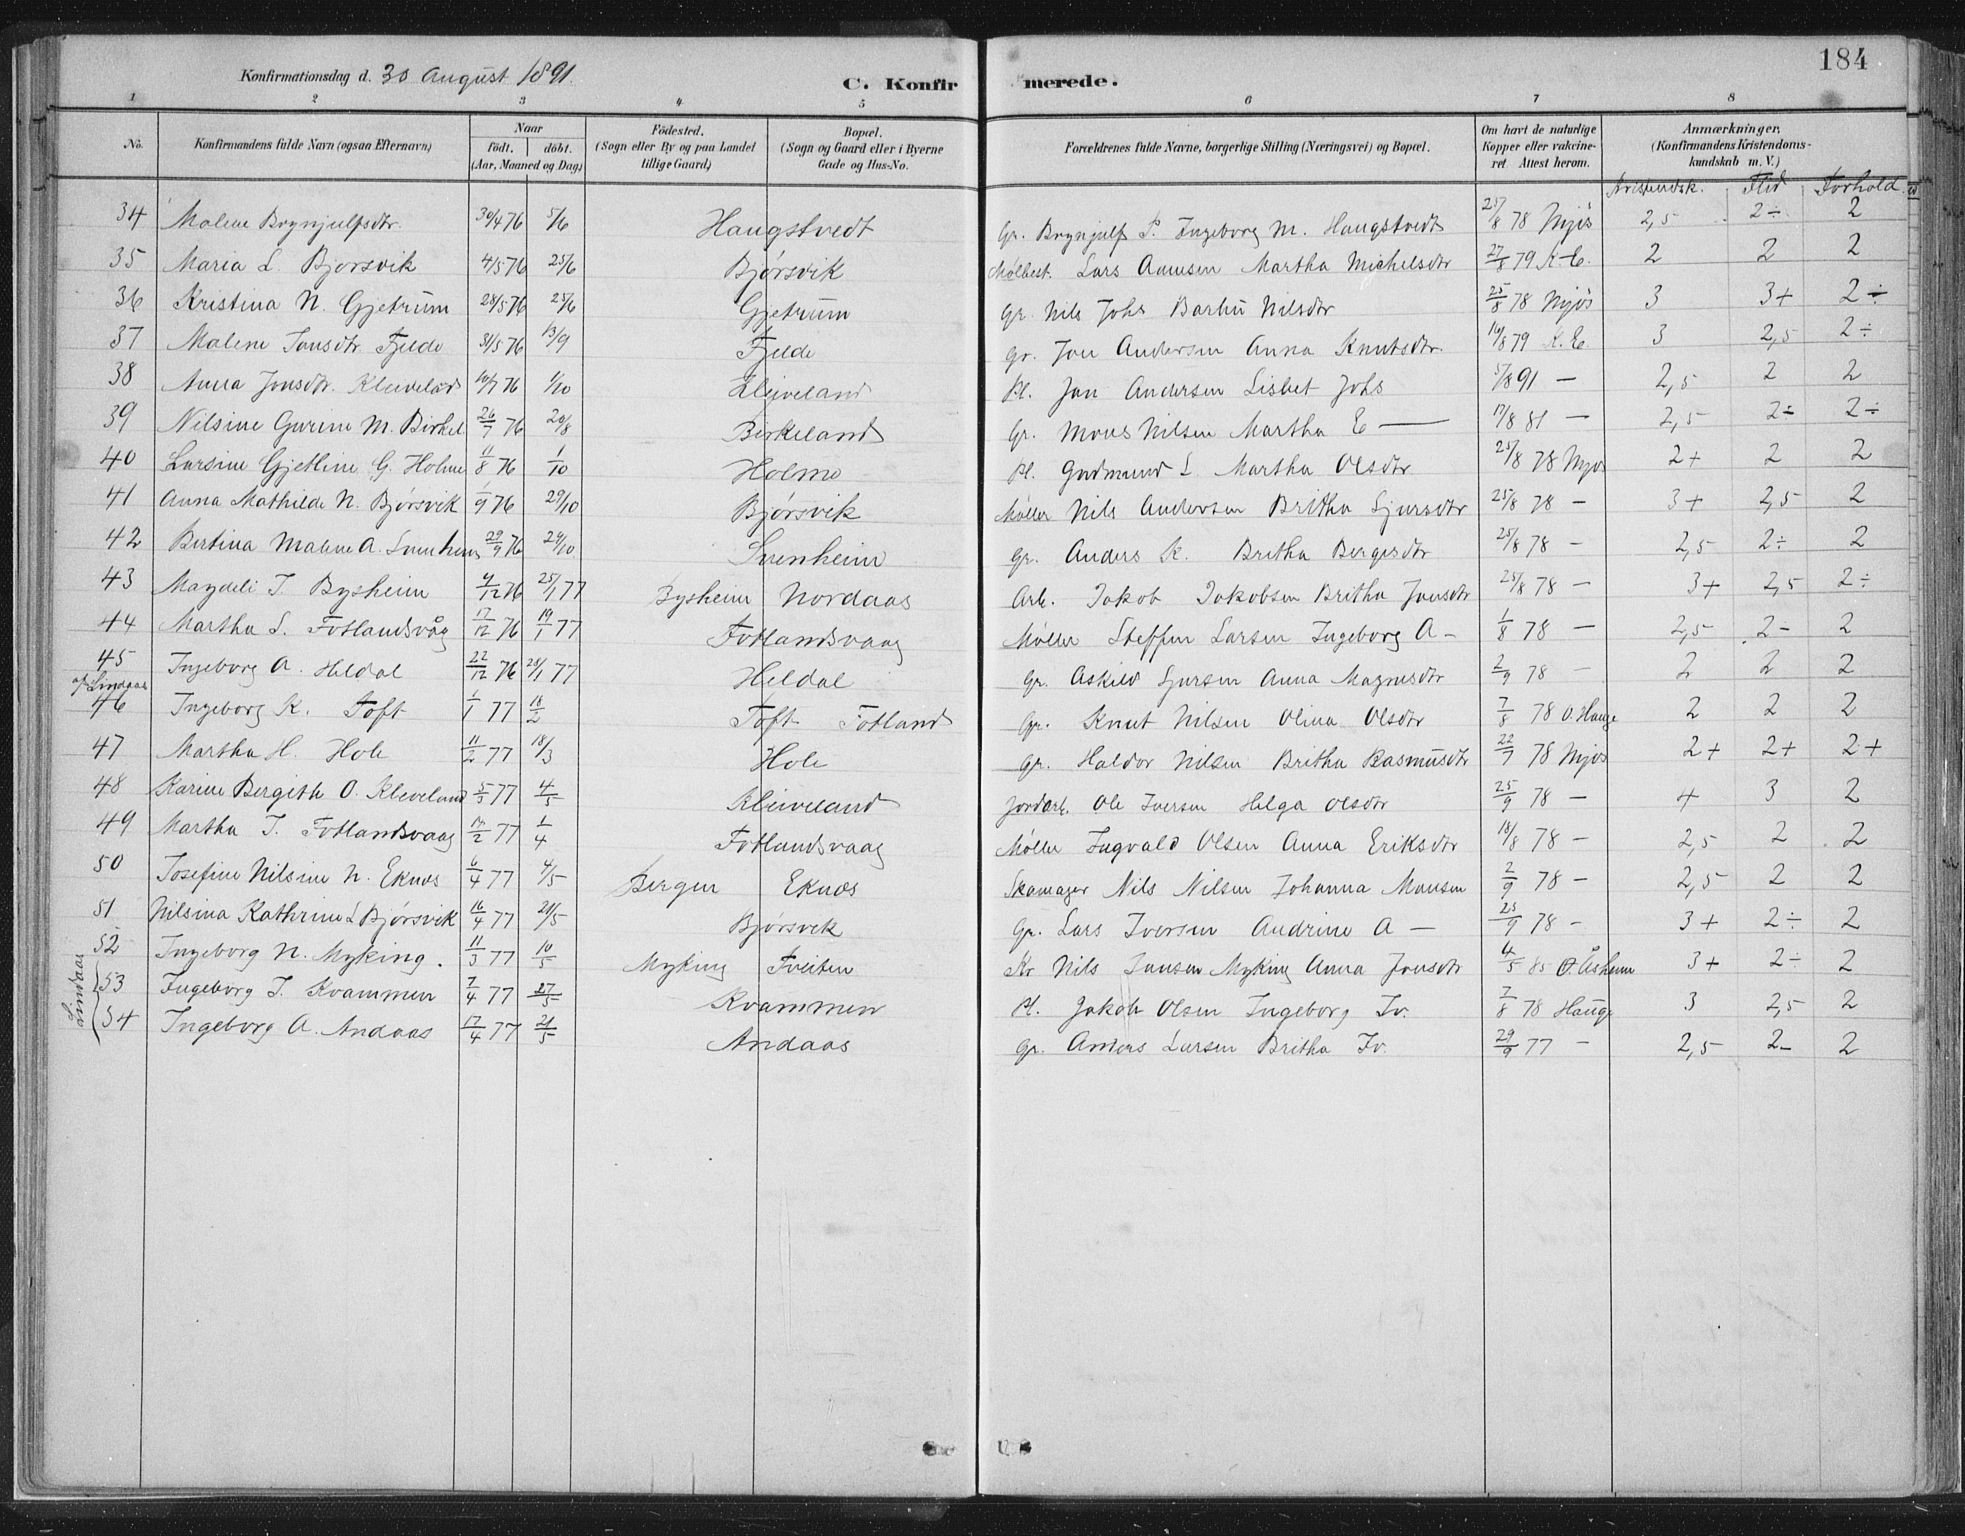 184
Konfirmationsdag d. 30 August 1891.
C. Konfirmerede.
1 2 3 4 5 6 7 8
No. Konfirmandens fulde Navn (ogsaa Efternavn) Naar født. døbt. (Aar, Maaned og Dag) Födested. (Sogn eller By og paa Landet tillige Gaard) Bopæl. (Sogn og Gaard eller i Byerne Gade og Hus-No. Forældrenes fulde Navne, borgerlige Stilling (Næringsvei) og Bopæl. Om havt de naturlige Kopper eller vakcineret. Attest herom. Anmærkninger. (Konfirmandens Kristendomskundskab m. V.)
Kristendsk. Flid Forhold
34 Malene Brynjulfsdtr. 30/4 76 5/6 Haugstvedt Gr. Brynjulf P. Ingeborg M. Haugstvedt 25/8 78 Mjøs 2,5 2÷ 2
35 Maria L. Bjorsvik 4/5 76 25/6 Bjørsvik Mølbest. Lars Aamsen Martha Michelsdtr 27/8 79 K.E. 2 2 2
36 Kristina N. Gjetrum 28/5 76 25/6 Gjetrum Gr. Nils Johs Barbu Nilsdtr 25/8 78 Mjøs 3 3+ 2÷
37 Malene Jonsdtr. Fjelde 31/5 76 13/9 Fjelde Gr. Jon Andersen Anna Knutsdtr. 16/8 79 K.E. 3 2,5 2÷
38 Anna Jonsdtr. Kleiveland 10/7 76 1/10 Kleiveland Pl. Jon Andersen Lisbet Johs 5/8 91 — 2,5 2 2
39 Nilsine Gurine M. Birkel 26/7 76 20/8 Birkeland Gr. Mons Nilsen Martha E — 17/8 81 — 2,5 2÷ 2÷
40 Larsine Gjetline G. Holme 11/8 76 1/10 Holme Pl. Gudmund L. Martha Olsdtr 25/8 78 Mjøs 2+ 2 2
41 Anna Mathilde N. Bjørsvik 1/9 76 29/10 Bjørsvik Møller Nils Andersen Britha Sjursdtr 25/8 78 - 3+ 2,5 2
42 Bertina Malene A. 29/9 76 29/10 Gr. Anders K. Britha Bergesdtr 25/8 78 - 2,5 2÷ 2
43 Magdeli J. Bysheim 4/12 76 25/1 77 Bysheim Nordaas Arb. Jakob Jakobsen Britha Jonsdtr 25/8 78 - 3+ 2,5 2÷
44 Martha S. Fotlandsvåg 17/12 76 19/1 77 Fotlandsvaag Møller Steffen Larsen Ingeborg A- 1/8 78 — 2,5 2- 2
45 Ingeborg A. Heldal 22/12 76 28/1 77 Heldal Gr. Askild Sjursen Anna Magnusdtr 2/9 78 - 2 2 2
af Lindaas
46 Ingeborg K. Toft 1/1 77 18/2 Toft Fotland Gr. Knut Nilsen Olina Olsdtr 7/8 78 O. Hauge 2 2 2
47 Martha H. Hole 11/2 77 18/3 Hole Gr. Haldor Nilsen Britha Rasmusdtr 22/7 78 Mjøs 2+ 2+ 2+
48 Karine Bergith O. Kleveland 5/3 77 4/5 Kleiveland Jordarb. Ole Iversen Helga Olsdtr 25/9 78 — 4 3 2
49 Martha I. Fotlandsvaag 14/2 77 1/4 Fotlandsvaag Møller Ingvald Olsen Anna Eriksdtr 18/8 78 — 2,5 2 2
50 Josefine Nilsine N. Eknes 6/4 77 4/5 Bergen Eknes Skomager Nils Nilsen Johanna Monsen 2/9 78 - 2,5 2 2
51 Nilsina Kathrine L Bjørsvik 16/4 77 21/5 Bjørsvik Gr. Lars Iversen Andrine A — 25/9 78 - 3+ 2÷ 2
52 Ingeborg N. Myking. 11/3 77 10/5 Myking Tveiten Kr Nils Jansen Myking Anna Jonsdtr 4/5 85 O. Åsheim 3+ 2÷ 2
Lindaas
53 Ingeborg J. Kvammen 7/4 77 27/5 Kvammen Pl. Jakob Olsen Ingeborg Iv. 7/8 78 Hauge 3 2,5 2
54 Ingeborg A. Andaas 17/4 77 21/5 Andaas Gr. Anders Larsen Britha Iv. 29/9 77 - 2,5 2- 2